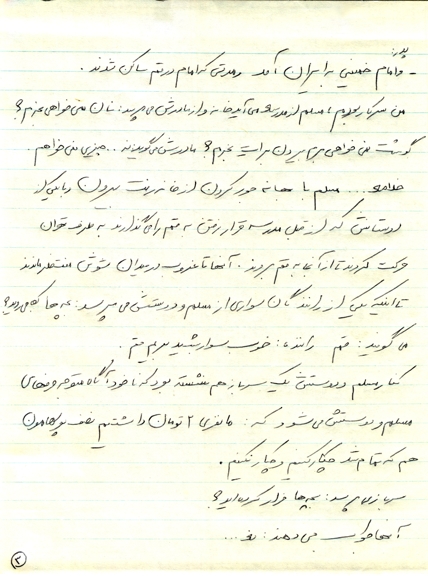 پدر:
- و امام خمینی به ایران آمد و مدتی که امام در قم ساکن شدند.
من سرکار بودم تا مسلم از مدرسه می آید خانه و از مادرش می پرسد: نان می خواهی بخرم؟
گوشت می خواهی بروم بیرون برایت بخرم؟ مادرش می گوید نه.. چیزی نمی خواهم.
خلاصه ... مسلم با بهانه جور کردن از خانه رفت بیرون با یکی از
دوستانش که از قبل مدرسه قرار رفتن به قم را می گذارند به طرف تهران
حرکت کردند تا از آنجا به قم بروند. آنجا تا غروب در میدان شوش منتظر ماندند
تا اینکه یکی از رانندگان سواری از مسلم و دوستش می پرسد: بچه ها کجا می روید؟
می گویند: قم راننده: خوب سوار شوید برویم قم.
کنار مسلم و دوستش یک سرباز هم نشسته بود که ناخودآگاه متوجه حرفهای
مسلم و دوستش می شود که: ما نفری ۲ تومان داشتیم نصف پولهامون
هم که تمام شد چکار کنیم چکار نکنیم.
سرباز می پرسد: بچه ها فرار کرده اید؟
آنها جواب می دهند: نه...
۲